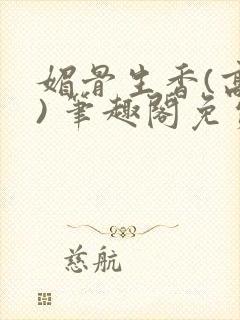 媚骨生香(高
)笔趣阁免
慈航